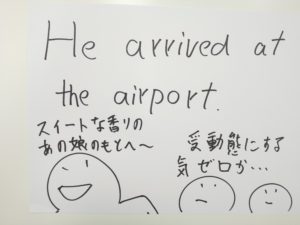 He arrived at
the airport.
スイートな香りの
あの娘のもとへ〜
受動態にする
気ゼロか…